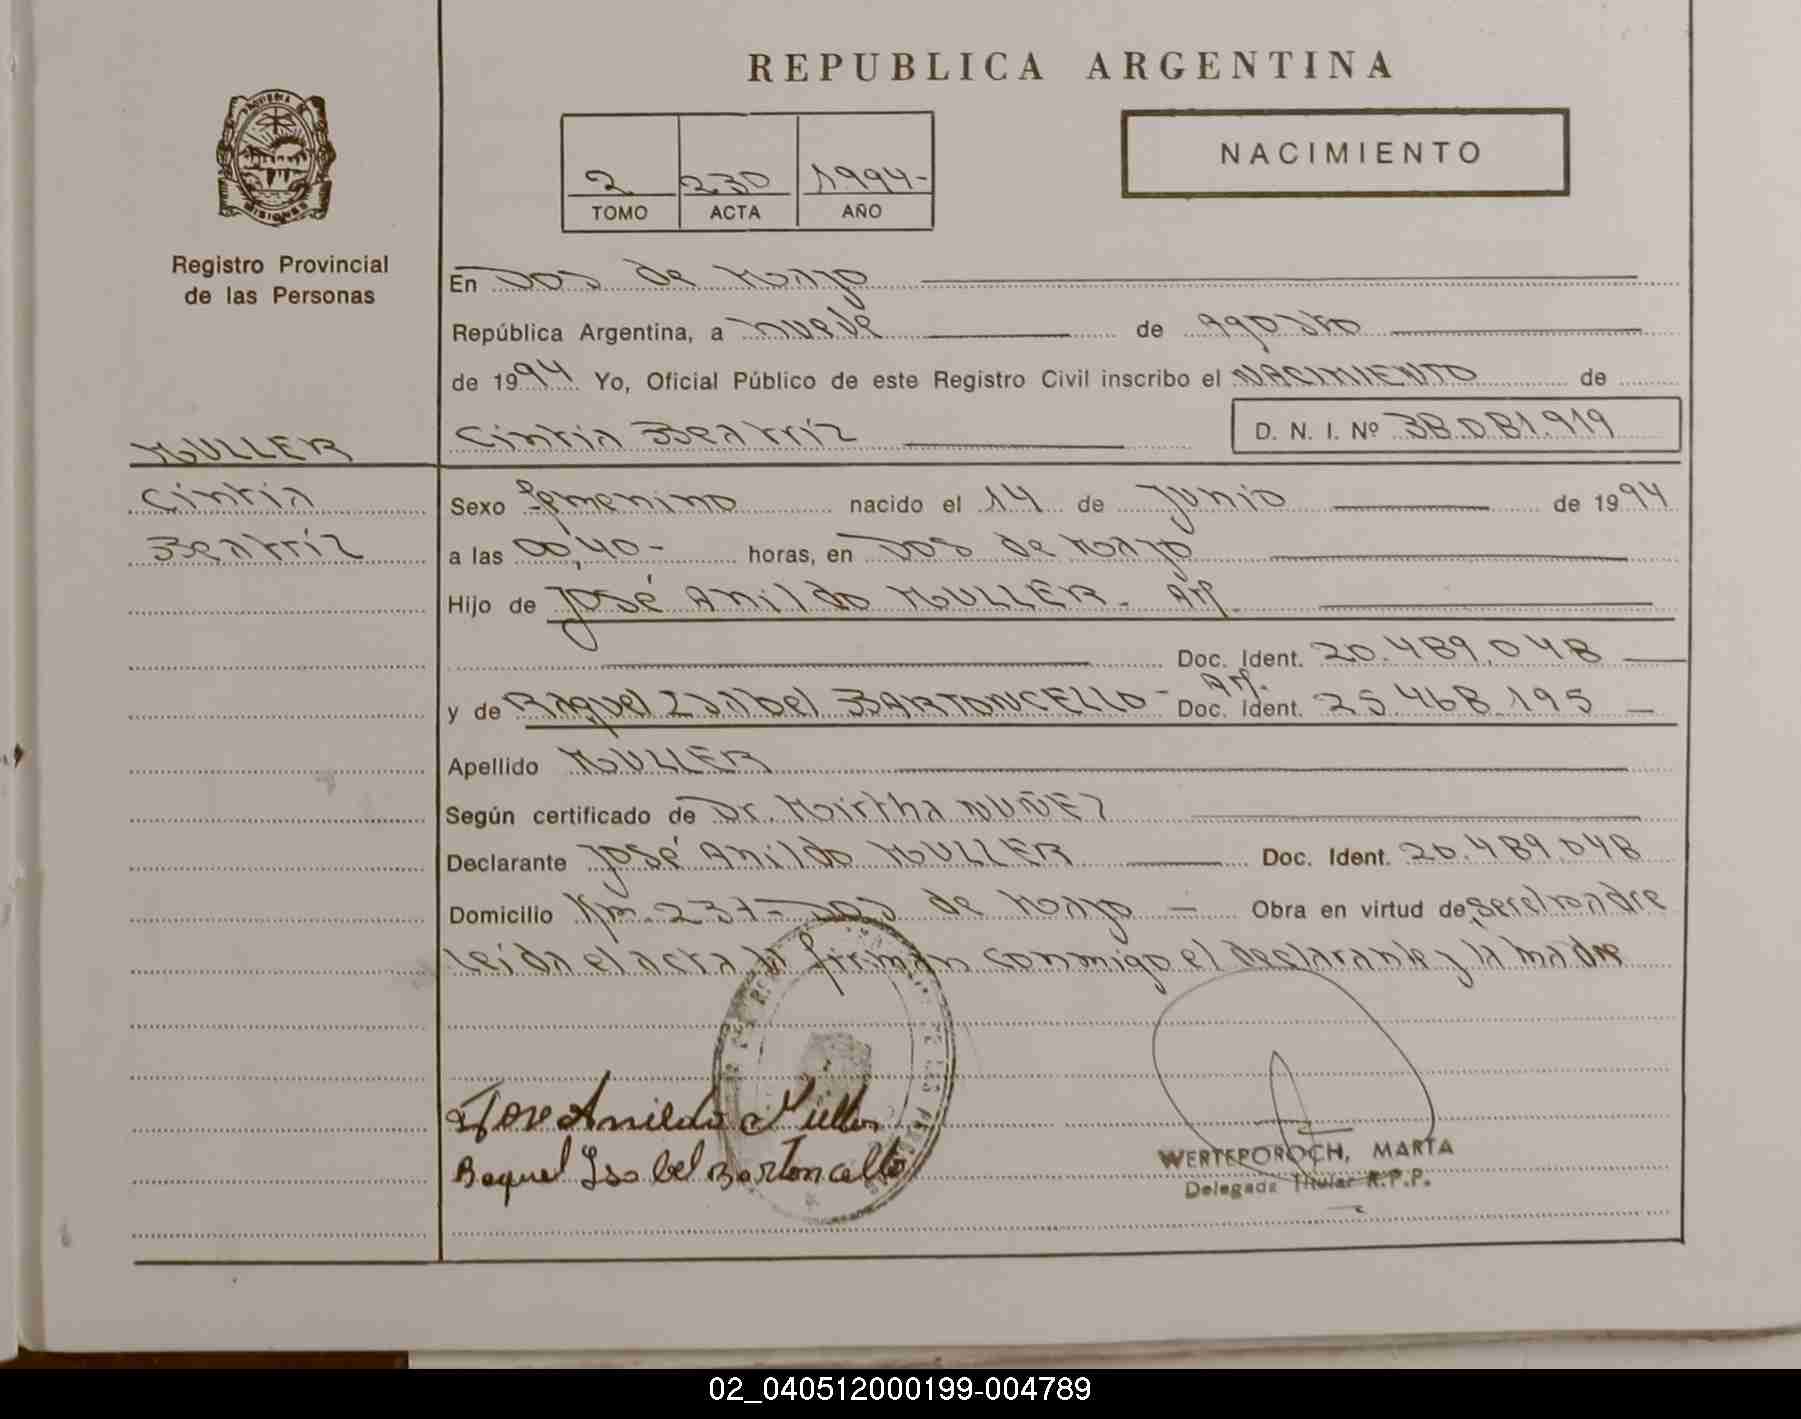 REPUBLICA ARGENTINA
2 230 1994-
TOMO ACTA AÑO
NACIMIENTO
MISIONES
Registro Provincial
de las Personas
En Dos de Mayo
República Argentina, a nueve de Agosto
de 1994 Yo, Oficial Público de este Registro Civil inscribo el NACIMIENTO de
MULLER
Cintia Beatriz D. N. I. Nº 38.081.919
Cintia
Beatriz
Sexo femenino nacido el 14 de Junio de 1994
a las 00,40- horas, en Dos de Mayo
Hijo de José Anildo MULLER- Arg.
Doc. Ident. 20.489.048
y de Raquel Isabel BARTONCELLO- Arg. Doc. Ident. 25.468.195
Apellido MULLER
Según certificado de Dr. Mirtha NUÑEZ
Declarante José Anildo MULLER Doc. Ident. 20.489.048
Domicilio Km. 237- Dos de Mayo - Obra en virtud de ser el padre
Leída el acta la firman conmigo el declarante y la madre
Jose Anildo Muller
Raquel Isabel Bartoncello
WERTEPOROCH, MARTA
Delegada Titular R.P.P.
02_040512000199-004789